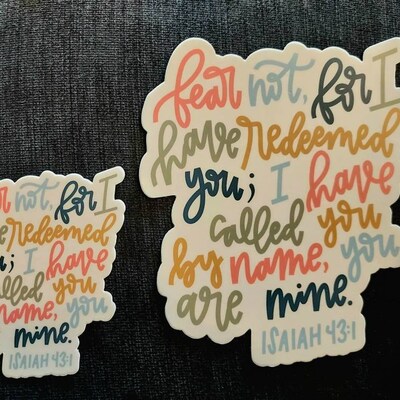 fear not, for I
have redeemed
you; I have
called you
by name, you
are mine.
ISAIAH 43:1
not, for I
redeemed
; I have
you
name, you
mine.
ISAIAH 43:1